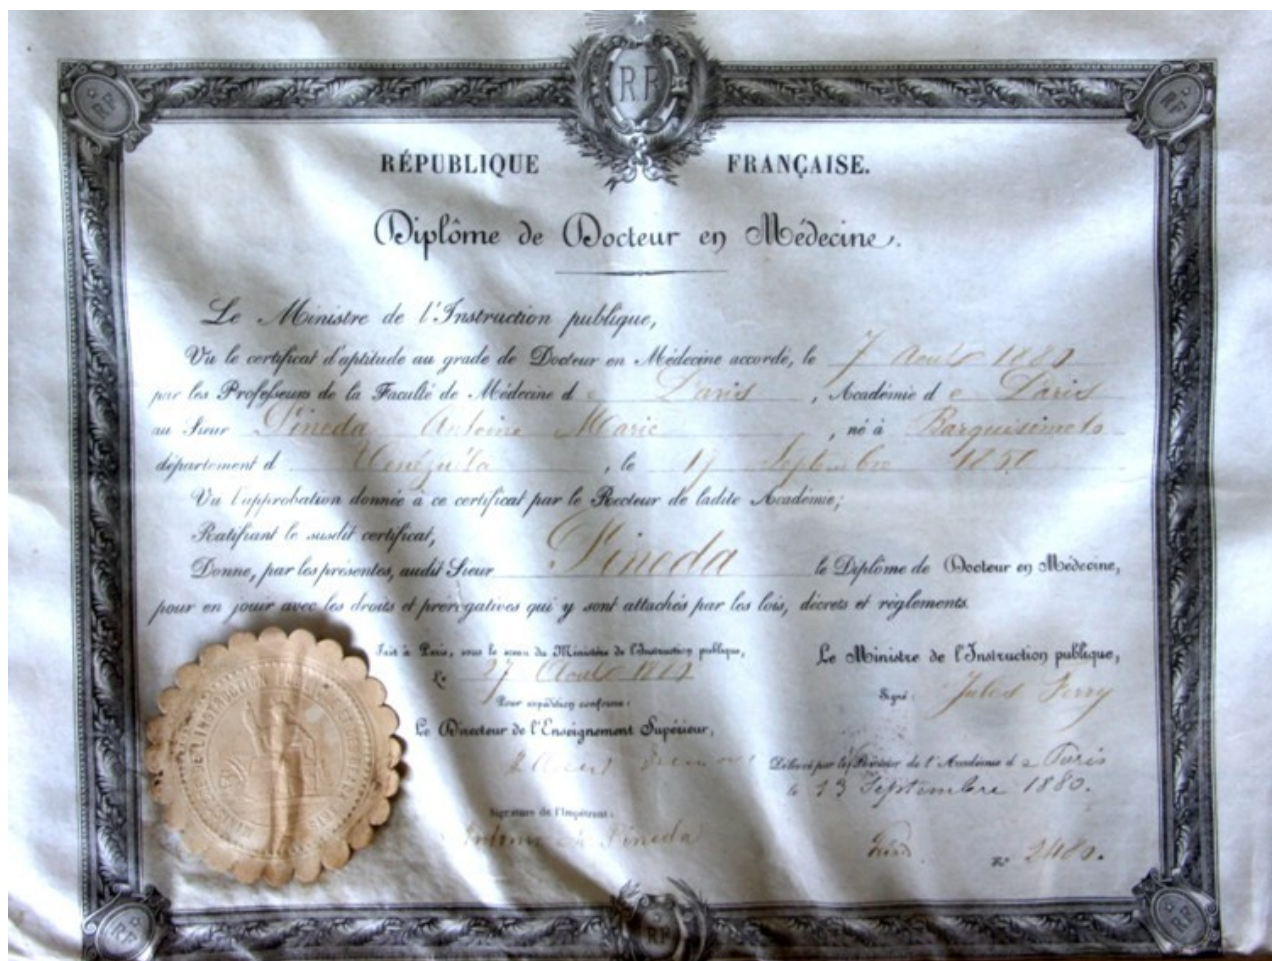 RF
RF
RF
RÉPUBLIQUE FRANÇAISE.
Diplôme de Docteur en Médecine.
Le Ministre de l'Instruction publique,
Vu le certificat d'aptitude au grade de Docteur en Médecine accordé, le 7 Août 1880
par les Professeurs de la Faculté de Médecine de Paris, Académie de Paris
au Sieur Pineda Antoine Marie, né à Barquisimeto
département d Vénézuéla, le 17 Septembre 1850
Vu l'approbation donnée à ce certificat par le Recteur de ladite Académie;
Ratifiant le susdit certificat,
Donne, par les présentes, audit Sieur Pineda le Diplôme de Docteur en Médecine,
pour en jouir avec les droits et prérogatives qui y sont attachés par les lois, décrets et règlements.
Fait à Paris, sous le sceau du Ministère de l'Instruction publique,
Le 27 Août
Pour expédition conforme:
Le Directeur de l'Enseignement Supérieur,
Signature de l'Impétrant:
Pineda
Le Ministre de l'Instruction publique,
Signé: Jules Ferry
Délivré par le Recteur de l'Académie de Paris
le 13 Septembre 1880.
No 2480.
RF
RF
RF